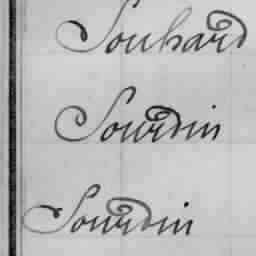 Souhard
Sourdin
Sourdin